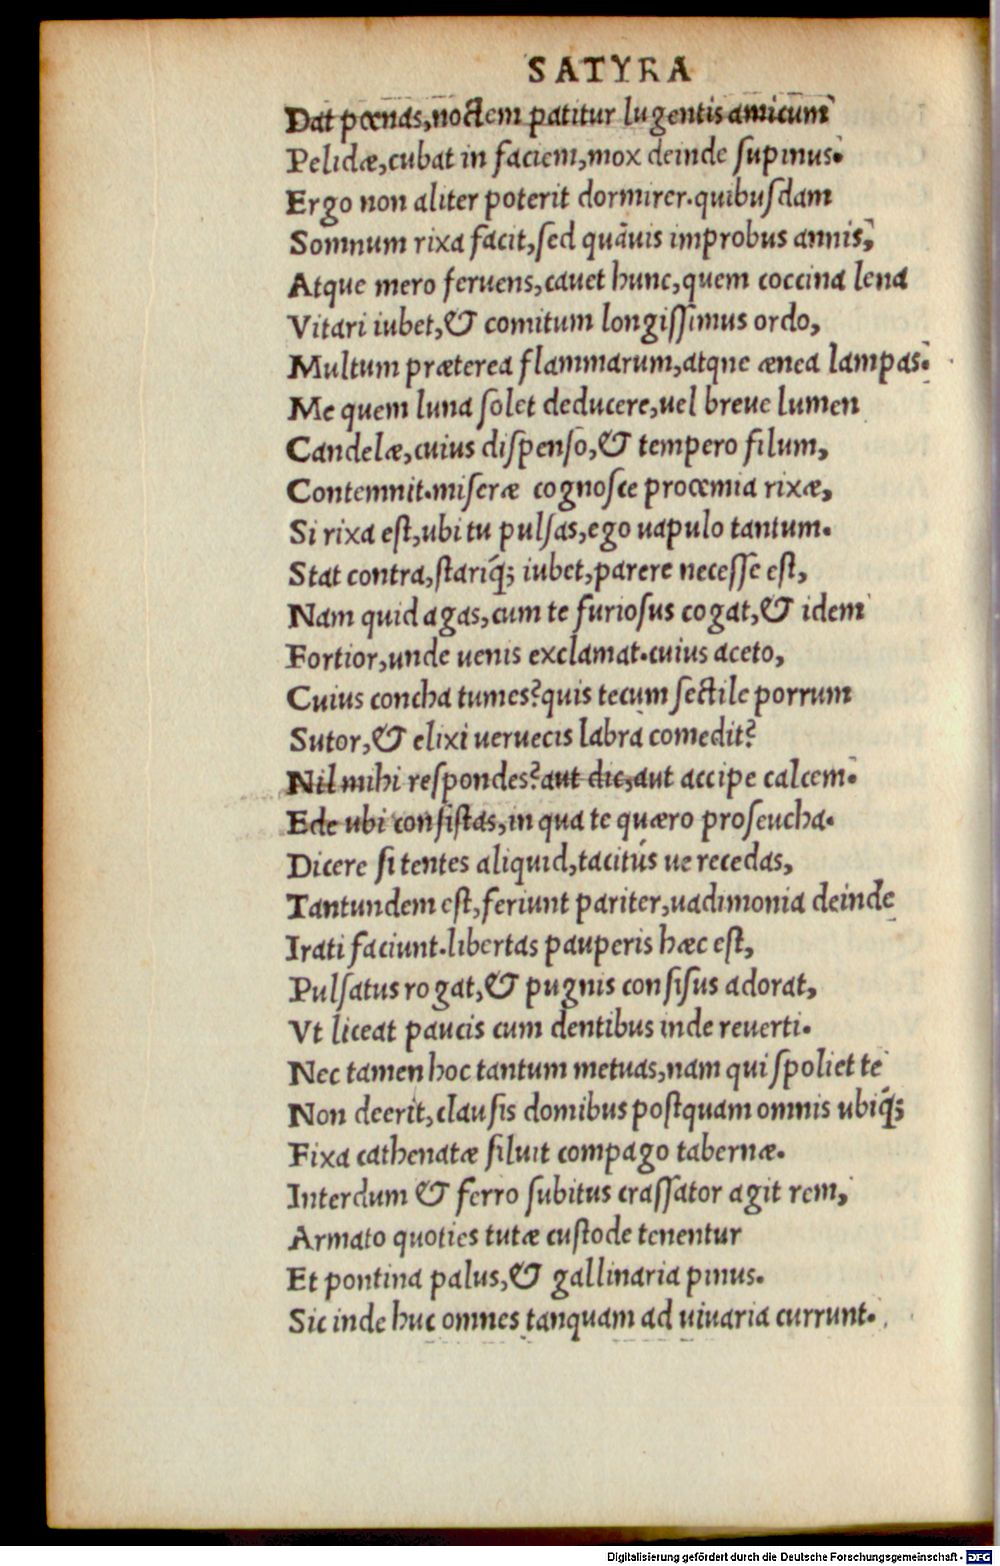 SATYRA
Dat pœnas,noctem patitur lugentis amicum
Pelidæ,cubat in faciem,mox deinde supinus.
Ergo non aliter poterit dormirer.quibusdam
Somnum rixa facit,sed quãuis improbus annis,
Atque mero feruens,cauet hunc,quem coccina lena
Vitari iubet,& comitum longissimus ordo,
Multum præterea flammarum,atqne ænea lampas.
Me quem luna solet deducere,uel breue lumen
Candelæ,cuius dispenso,& tempero filum,
Contemnit.miseræ cognosce proœmia rixæ,
Si rixa est,ubi tu pulsas,ego uapulo tantum.
Stat contra,stariq̃; iubet,parere necesse est,
Nam quid agas,cum te furiosus cogat,& idem
Fortior,unde uenis exclamat.cuius aceto,
Cuius concha tumes?quis tecum sectile porrum
Sutor,& elixi ueruecis labra comedit?
Nil mihi respondes?aut dic,aut accipe calcem.
Ede ubi consistas,in qua te quæro proseucha.
Dicere si tentes aliquid,tacitús ue recedas,
Tantundem est,feriunt pariter,uadimonia deinde
Irati faciunt.libertas pauperis hæc est,
Pulsatus rogat,& pugnis consisus adorat,
Vt liceat paucis cum dentibus inde reuerti.
Nec tamen hoc tantum metuas,nam qui spoliet te
Non deerit,clausis domibus postquam omnis ubiq̃;
Fixa cathenatæ siluit compago tabernæ.
Interdum & ferro subitus crassator agit rem,
Armato quoties tutæ custode tenentur
Et pontina palus,& gallinaria pinus.
Sic inde huc omnes tanquam ad uiuaria currunt.
Digitalisierung gefördert durch die Deutsche Forschungsgemeinschaft - DFG